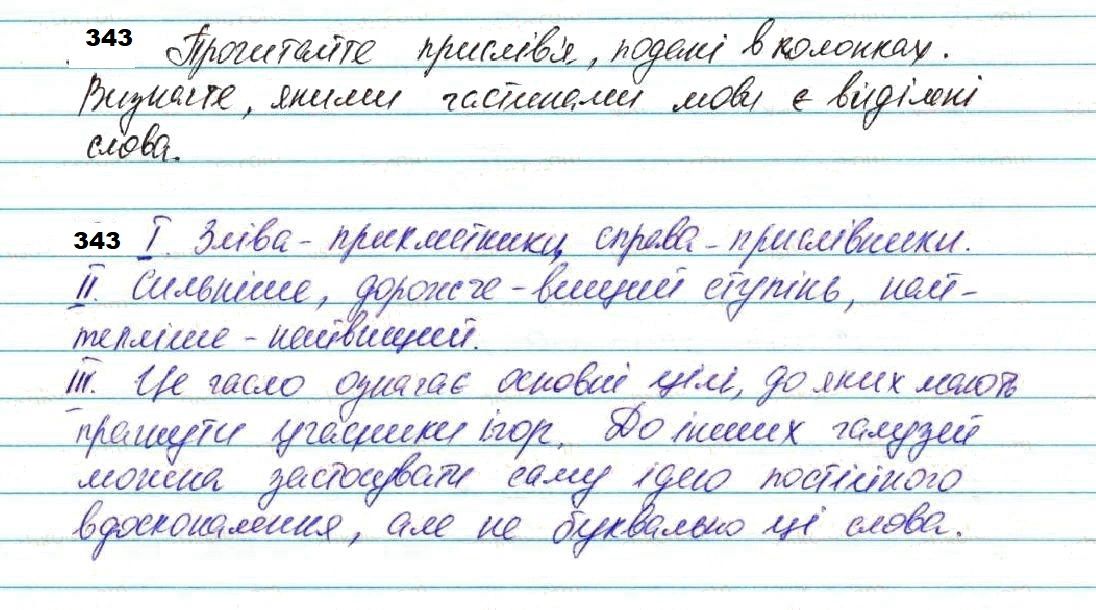 343 Прочитайте прислів'я, подані в колонках.
Визначте, якими частинами мови є виділені
слова.
343 I. Зліва - прикметники, справа - прислівники.
II. Сильніше, дорожче - вищий ступінь, най-
тепліше - найвищий.
III. Це гасло означає основні цілі, до яких мають
прагнути учасники ігор. До інших галузей
можна застосувати саму ідею постійного
вдосконалення, але не буквально ці слова.